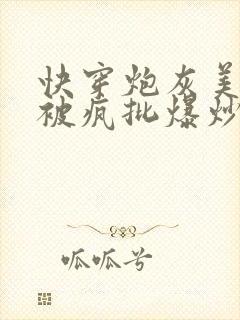 快穿炮灰美
被疯批爆炒
呱呱兮